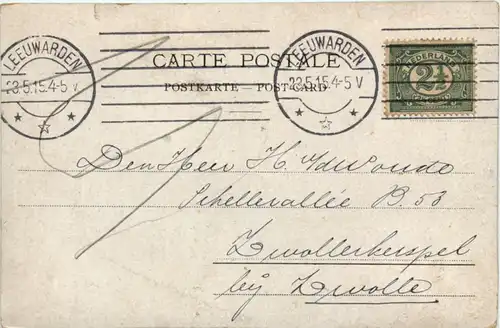 LEEUWARDEN
23.5.15.4-5 V
LEEUWARDEN
23.5.15.4-5 V
NEDERLAND
2½
CARTE POSTALE
POSTKARTE — POST-CARD
Den Heer H.
Schellerallée B. 58
Zwollerkerspel
bij Zwolle